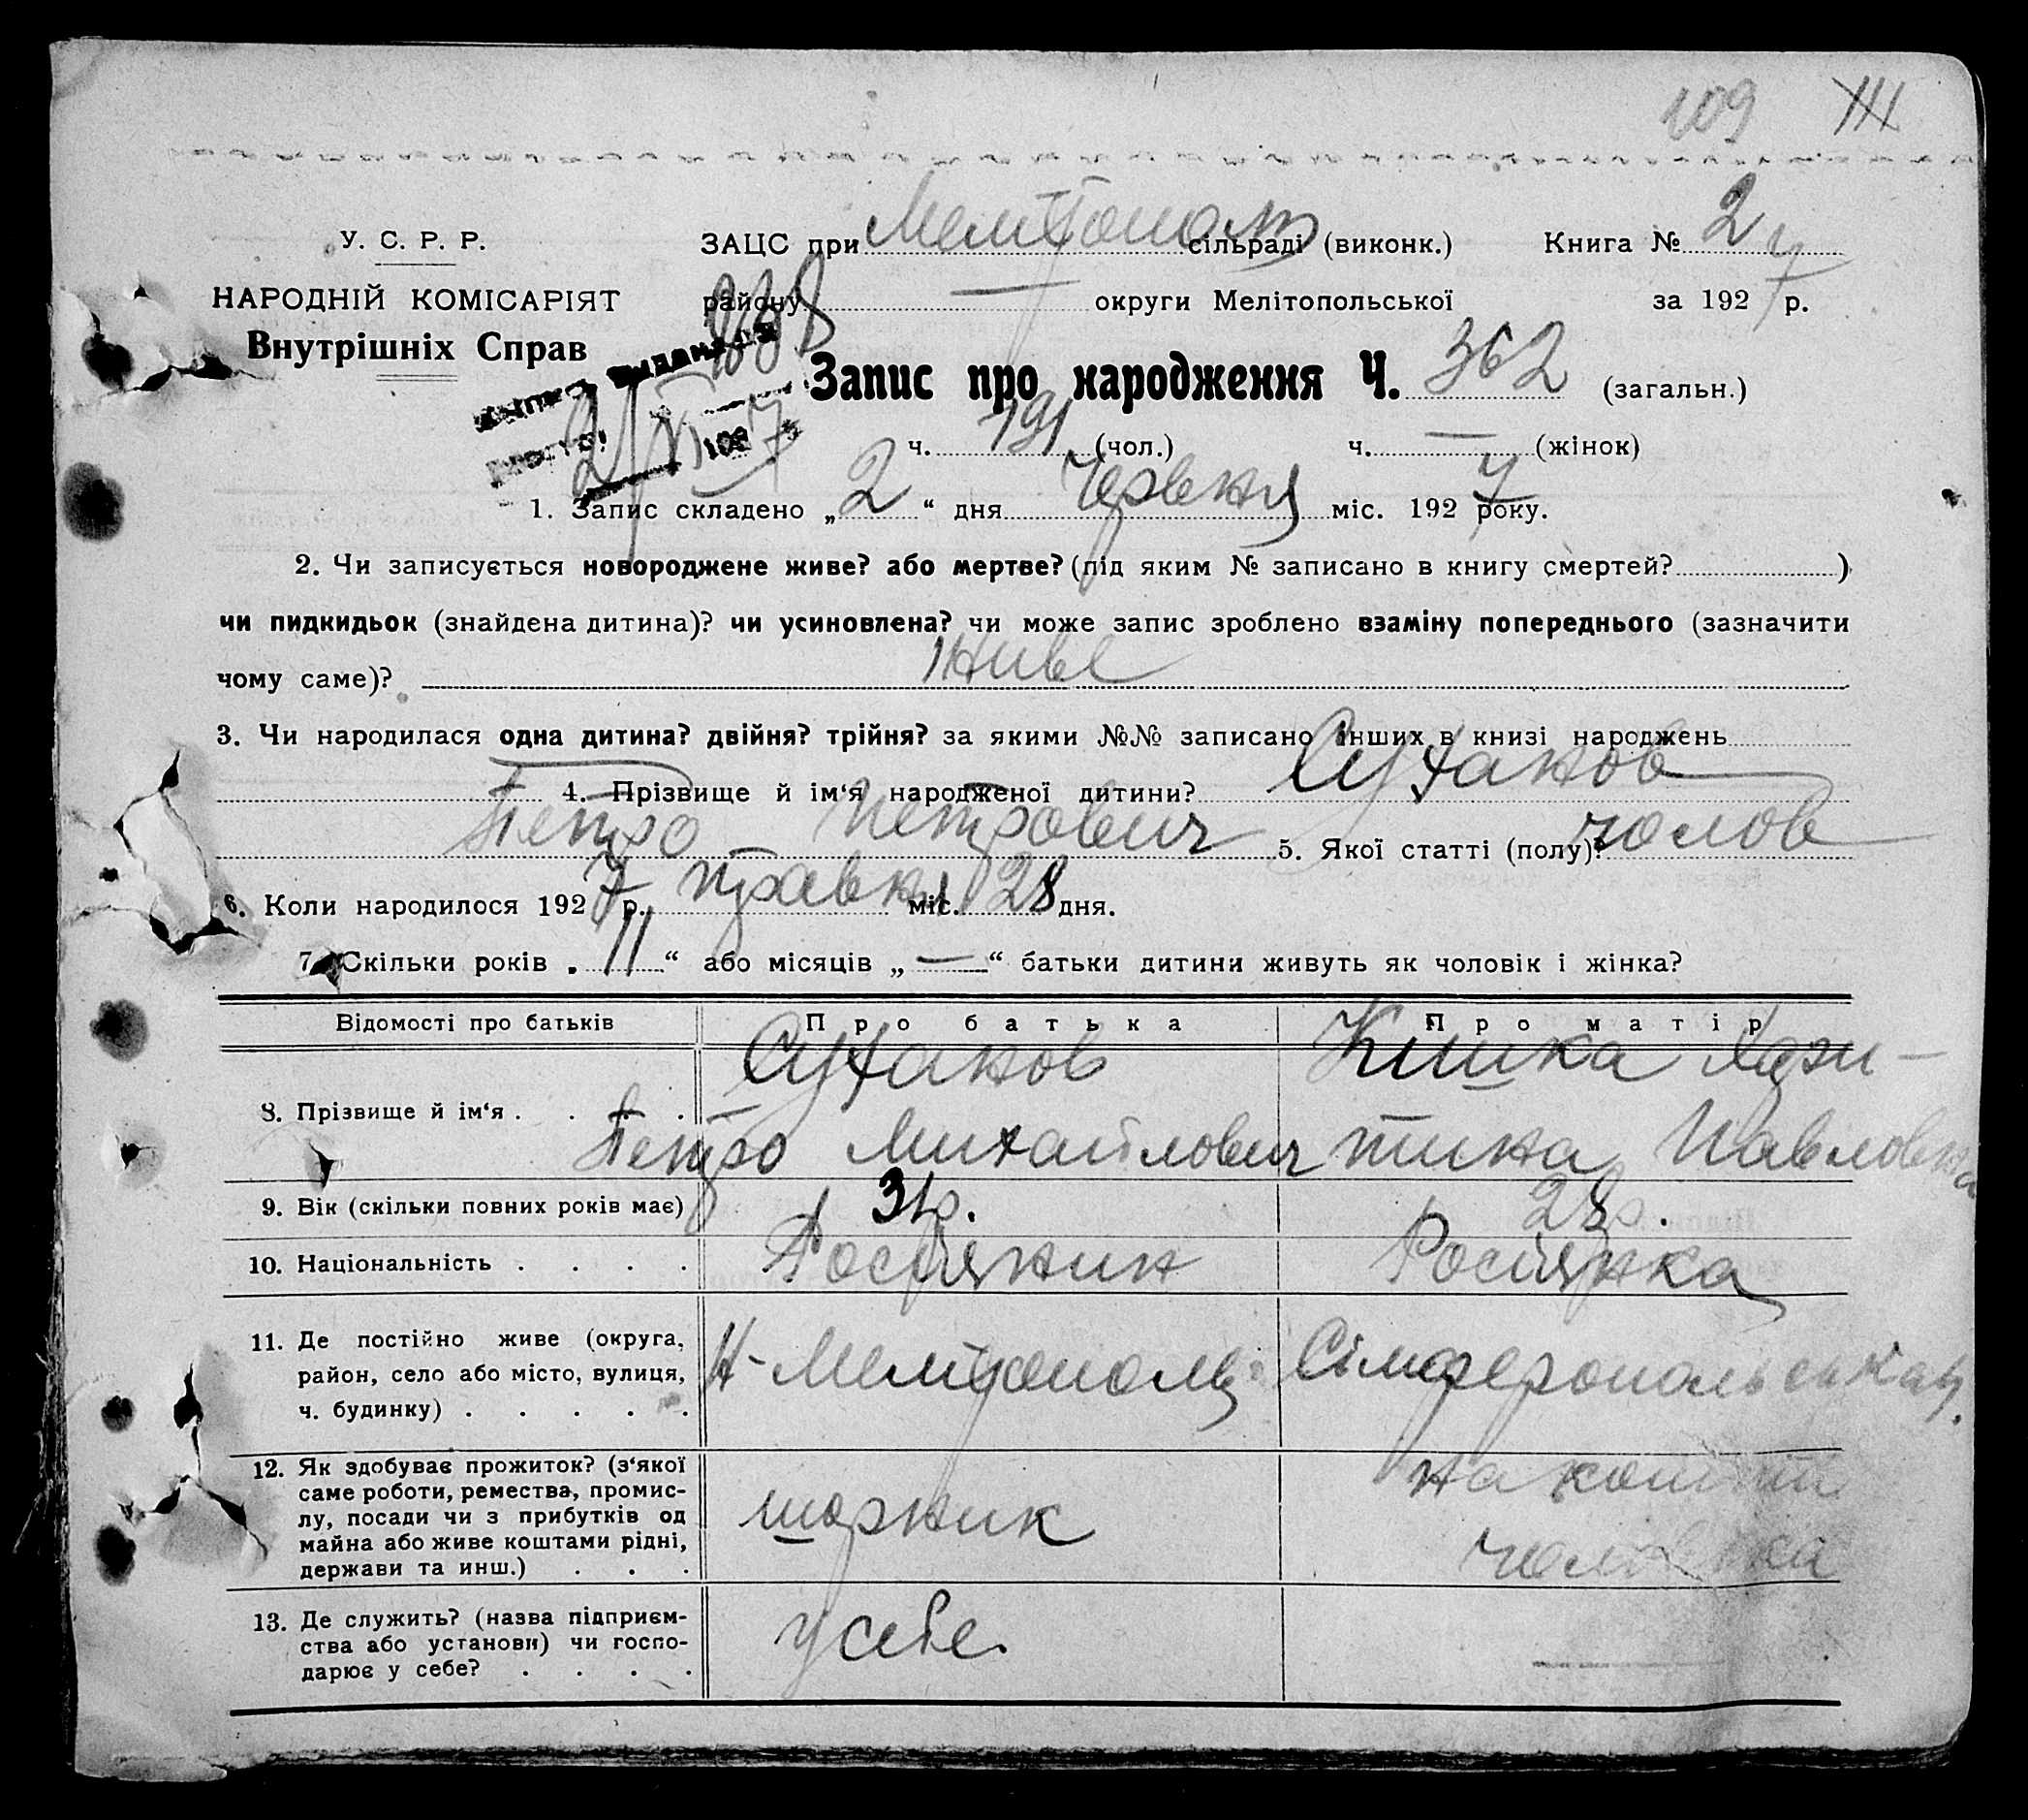 109 III
У. С. Р. Р.
НАРОДНІЙ КОМІСАРІЯТ
Внутрішніх Справ
ЗАЦС при Мелітополь сільраді (виконк.) Книга № 2
району — округи Мелітопольської за 1927 р.
Запис про народження Ч. 362 (загальн.)
ч. 191 (чол.) ч. — (жінок)
1. Запис складено „2“ дня Червня міс. 1927 року.
2. Чи записується новороджене живе? або мертве? (під яким № записано в книгу смертей? )
чи пидкидьок (знайдена дитина)? чи усиновлена? чи може запис зроблено взаміну попереднього (зазначити
чому саме)? живе
3. Чи народилася одна дитина? двійня? трійня? за якими №№ записано інших в книзі народжень
4. Прізвище й ім'я народженої дитини? Суханов
Петро Петрович 5. Якої статті (полу)? чолов
6. Коли народилося 1927 р. травня міс. 28 дня.
7. Скільки років „11“ або місяців „—“ батьки дитини живуть як чоловік і жінка?
Відомості про батьків Про батька Про матір
8. Прізвище й ім'я . . . . Суханов Петро Михайлович Кишка Хри-тина Павловна
9. Вік (скільки повних років має) 31р. 28р.
10. Національність . . . . Росіянин Росіянка
11. Де постійно живе (округа,
район, село або місто, вулиця,
ч. будинку) . . . . . Н-Мелітополь Сімферопольська
12. Як здобуває прожиток? (з'якої
саме роботи, ремества, промис-
лу, посади чи з прибутків од
майна або живе коштами рідні,
держави та инш.) . . . шорник на кошти чоловіка
13. Де служить? (назва підприєм-
ства або установи) чи госпо-
дарює у себе? . . . . у себе. —